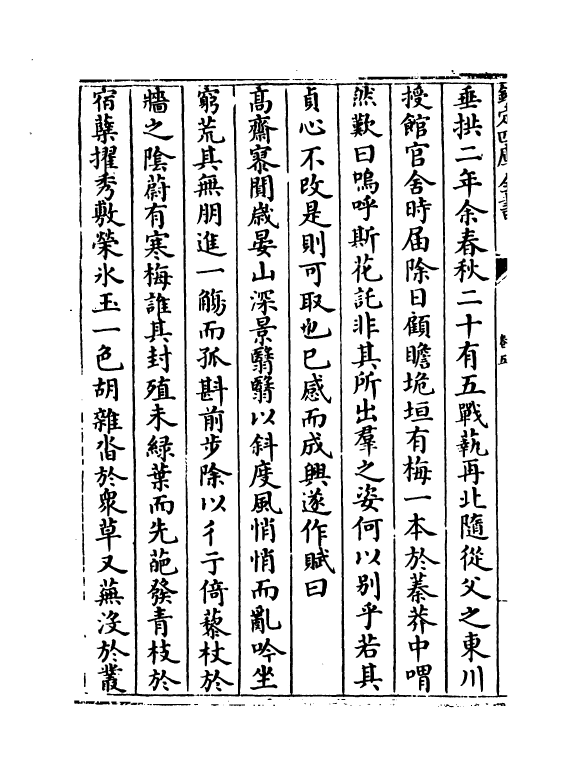 欽定四庫全書
卷五
垂拱二年余春秋二十有五戰蓺再北隨從父之東川
授館官舍時届除日顧瞻垝垣有梅一本於蓁莽中喟
然歎曰嗚呼斯花託非其所出羣之姿何以别乎若其
貞心不改是則可取也已感而成興遂作賦曰
高齋寥閴歳晏山深景翳翳以斜度風悄悄而亂吟坐
窮荒其無朋進一觴而孤斟前步除以彳亍倚藜杖於
牆之陰蔚有寒梅誰其封殖未綠葉而先葩發青枝於
宿蘖擢秀敷榮氷玉一色胡雜沓於衆草又蕪沒於叢